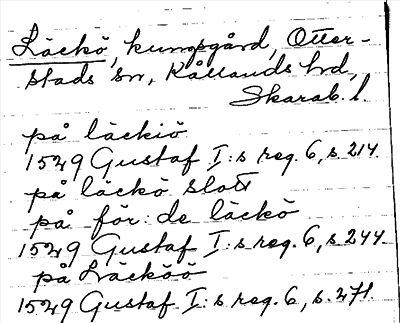 Läckö, kungsgård, Otter-
stads sn, Kållands hd,
Skarab. l.
på läckiö
1529 Gustaf I:s reg. 6, s. 214
på läckö slott
på för: de läckö
1529 Gustaf I:s reg. 6, s. 244.
på Läcköö
1529 Gustaf I:s reg. 6, s. 271.